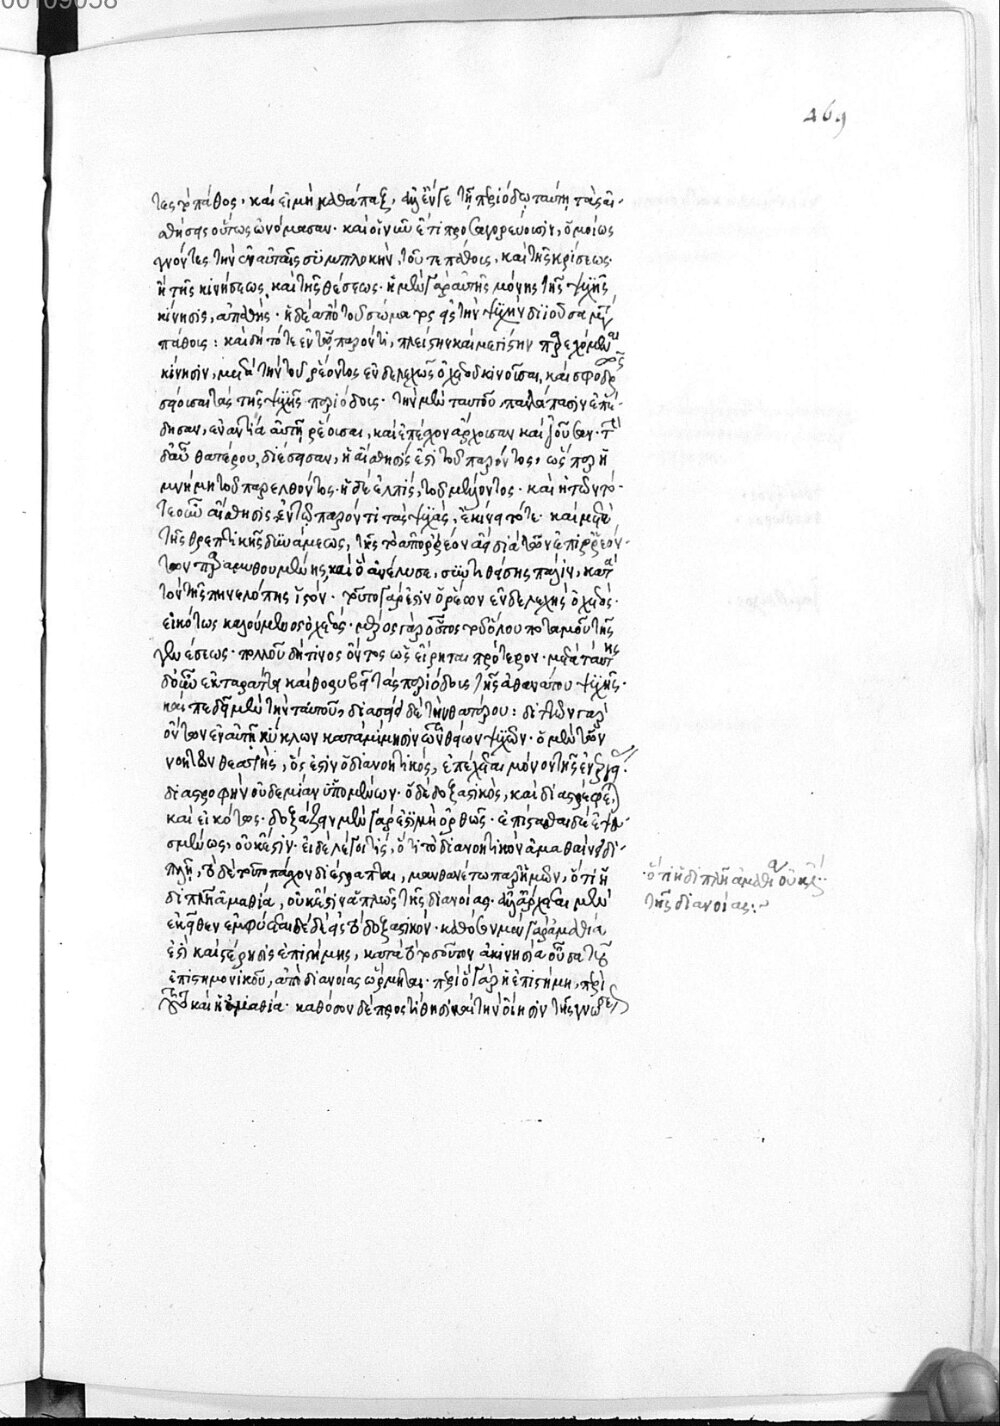 00109058
469
τες τὸ πάθος. καὶ εἰ μὴ καθάπαξ, ἀλλ' ἔν γε τῇ περιόδῳ ταύτῃ τὰς αἰ-
σθήσεις οὕτως ὠνόμασαν. καὶ οἱ νῦν ἔτι προσαγορεύουσιν, ὁμοίως
γνόντες τὴν ἐν αὐταῖς συμπλοκὴν, τοῦ τε πάθους, καὶ τῆς κρίσεως.
ἢ τῆς κινήσεως, καὶ τῆς θέσεως. ἡ μὲν γὰρ αὐτῆς μόνης τῆς ψυχῆς
κίνησις, ἀπαθής. ἡ δὲ ἀπὸ τοῦ σώματος εἰς τὴν ψυχὴν διϊοῦσα μετὰ
πάθους: καὶ δὴ τότε ἐν τῷ παρόντι, πλείστην καὶ μεγίστην παρεχόμεναι
κίνησιν, μετὰ τοῦ ῥέοντος ἐνδελεχῶς ὀχετοῦ κινοῦσαι, καὶ σφοδρῶς
σείουσαι τὰς τῆς ψυχῆς περιόδους. τὴν μὲν ταυτοῦ, παντάπασιν ἐπέ-
δησαν, ἐναντία αὐτῇ ῥέουσαι, καὶ ἐπέσχον ἄρχουσαν καὶ ἰοῦσαν. τὴν
δ' αὖ θατέρου, διέσεισαν, ἡ αἴσθησίς ἐστι τοῦ παρόντος, ὥσπερ ἡ
μνήμη τοῦ παρελθόντος. ἡ δὲ ἐλπὶς, τοῦ μέλλοντος. καὶ ἡ τῶν τό-
τε οὖν αἴσθησις ἐν τῷ παρόντι τὰς ψυχὰς, ἐκίνει τότε. καὶ μετὰ
τῆς θρεπτικῆς δυνάμεως, τῆς τὸ ἀπορρέον ἀεὶ διὰ τῶν ἐπιρρεόν-
των παραμυθουμένης, καὶ ὃ ἀνέλυσε, συντιθείσης πάλιν, κατὰ
τὸν τῆς πηνελόπης ἱστόν. τοῦτο γάρ ἐστιν ὁ ῥέων ἐνδελεχὴς ὀχετός.
εἰκότως καλούμενος ὀχετός. μέρος γὰρ οὗτος τοῦ ὅλου ποταμοῦ τῆς
γενέσεως. πολλοῦ δή τινος ὄντος ὡς εἴρηται πρότερον. μετὰ ταύτης
δ' οὖν ἐκταράττει καὶ θορυβεῖ τὰς περιόδους τῆς ἀθανάτου ψυχῆς.
καὶ πεδᾷ μὲν τὴν ταυτοῦ, διασείει δὲ τὴν θατέρου: διττῶν γὰρ
ὄντων ἐν αὐτῇ κύκλων κατὰ μίμησιν τῶν θείων ψυχῶν. ὁ μὲν τῶν
νοητῶν θεατὴς, ὅς ἐστιν ὁ διανοητικὸς, ἐπέχεται μόνον τῆς ἐνεργείας.
διαστροφὴν οὐδεμίαν ὑπομένων. ὁ δὲ δοξαστικὸς, καὶ διαστρέφεται
καὶ εἰκότως. δοξάζειν μὲν γάρ ἐστι μὴ ὀρθῶς. ἐπίστασθαι δὲ ἐψευ-
σμένως, οὐκ ἔστιν. εἰ δὲ λέγοι τις, ὅτι τὸ διανοητικὸν ἀμαθαίνει δι-
πλῆ, τὸ δὲ τοῦτο πάσχον διέστραπται, μανθανέτω παρ' ἡμῶν, ὅτι ἡ
διπλῆ ἀμαθία, οὐκ ἔστιν ἁπλῶς τῆς διανοίας. ἀλλ' ἄρχεται μὲν
ἐκεῖθεν ἐμφύεται δὲ εἰς τὸ δοξαστικόν. καθόσον μὲν γὰρ ἀμαθία
ἐστὶ καὶ στέρησις ἐπιστήμης, κατὰ τοσοῦτον ἀκινησία οὖσα τοῦ
ἐπιστημονικοῦ, ἀπὸ διανοίας ὥρμηται. περὶ ὃ γὰρ ἡ ἐπιστήμη, περὶ
τοῦτο καὶ ἡ ἀμαθία. καθόσον δὲ προστίθησι καὶ τὴν οἴησιν τῆς γνώσεως
ὅτι ἡ διπλῆ ἀμαθία οὐκ ἔστι
τῆς διανοίας:~